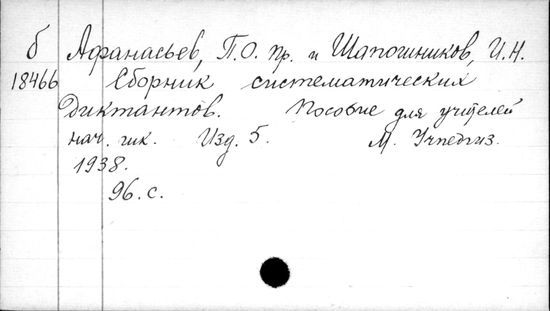 б Афанасьев, П.О. пр. и Шапошников, И.Н.
18466 Сборник систематических
диктантов. Пособие для учителей
нач. шк. Изд. 5. М. Учпедгиз.
1938.
96. с.